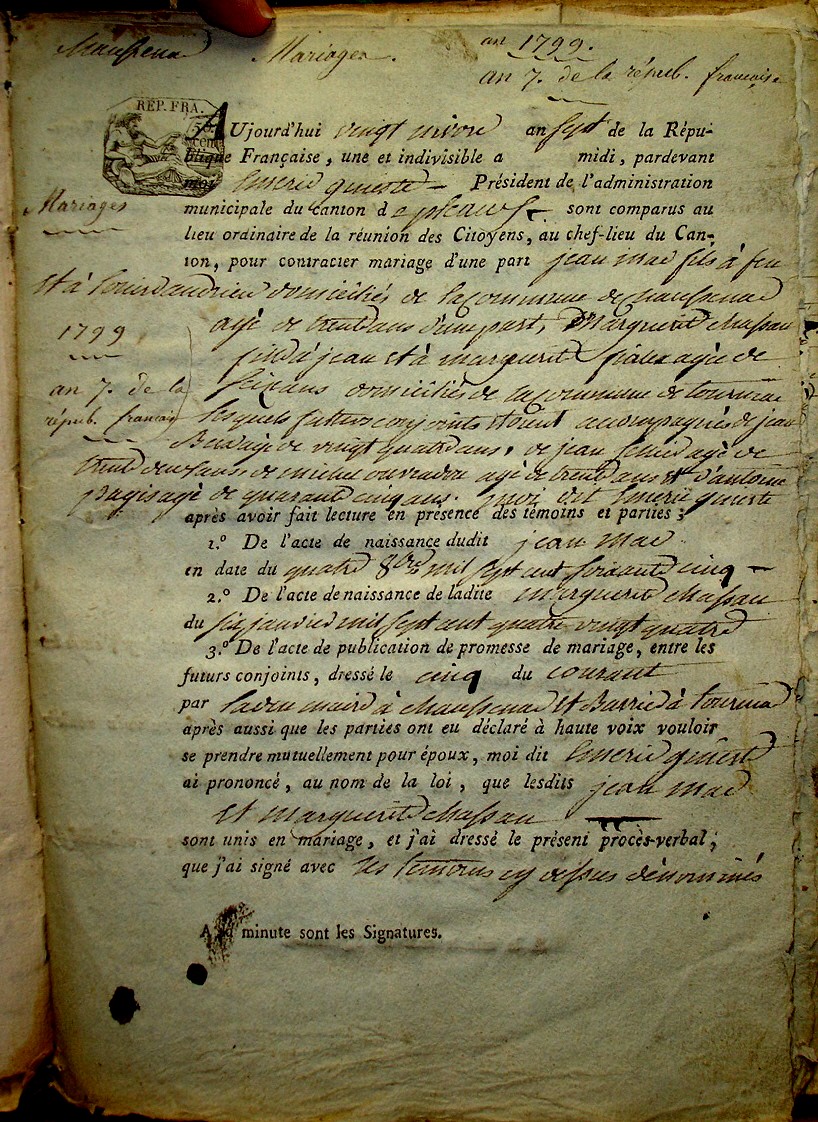 Maussenac Mariages. an 1799.
an 7. de la répub. française
REP. FRA.
AUjourd'hui vingt nivose an sept de la Répu-
blique Française, une et indivisible a midi, pardevant
moi Emerie Président de l'administration
Mariages
municipale du canton d sont comparus au
lieu ordinaire de la réunion des Citoyens, au chef-lieu du Can-
ton, pour contracter mariage d'une part jean mas fils à feu
et à domiciliés de la commune de maussenac
1799
agé de trente ans d'une part, Marguerite chassan
fille à jean et à marguerite agée de
an 7. de la
seize ans domiciliés de la commune de tourniac
répub. français
lesquels futurs conjoints etoient accompagnés de jean
agé de vingt quatre ans, de jean agé de
trente deux ans de michel agé de trente ans et d'antoine
pagis agé de quarante cinq ans. moi dit Emerie
après avoir fait lecture en présence des témoins et parties;
1.º De l'acte de naissance dudit jean mas
en date du quatre 8bre mil sept cent soixante cinq
2.º De l'acte de naissance de ladite marguerite chassan
du six janvier mil sept cent quatre vingt quatre
3.º De l'acte de publication de promesse de mariage, entre les
futurs conjoints, dressé le cinq du courant
par maire à Maussenac et Barrie à tourniac
après aussi que les parties ont eu déclaré à haute voix vouloir
se prendre mutuellement pour époux, moi dit Emerie
ai prononcé, au nom de la loi, que lesdits jean mas
et marguerite chassan
sont unis en mariage, et j'ai dressé le présent procès-verbal;
que j'ai signé avec les temoins cy dessus dénommés
A la minute sont les Signatures.